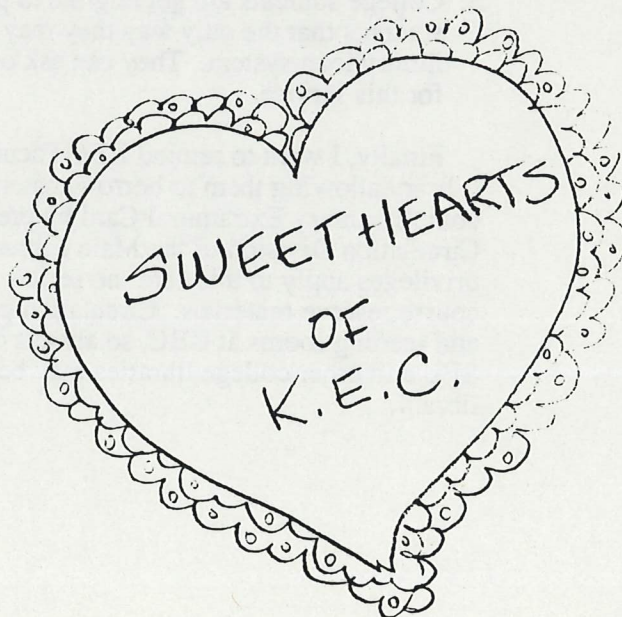 SWEETHEARTS
OF
K.E.C.